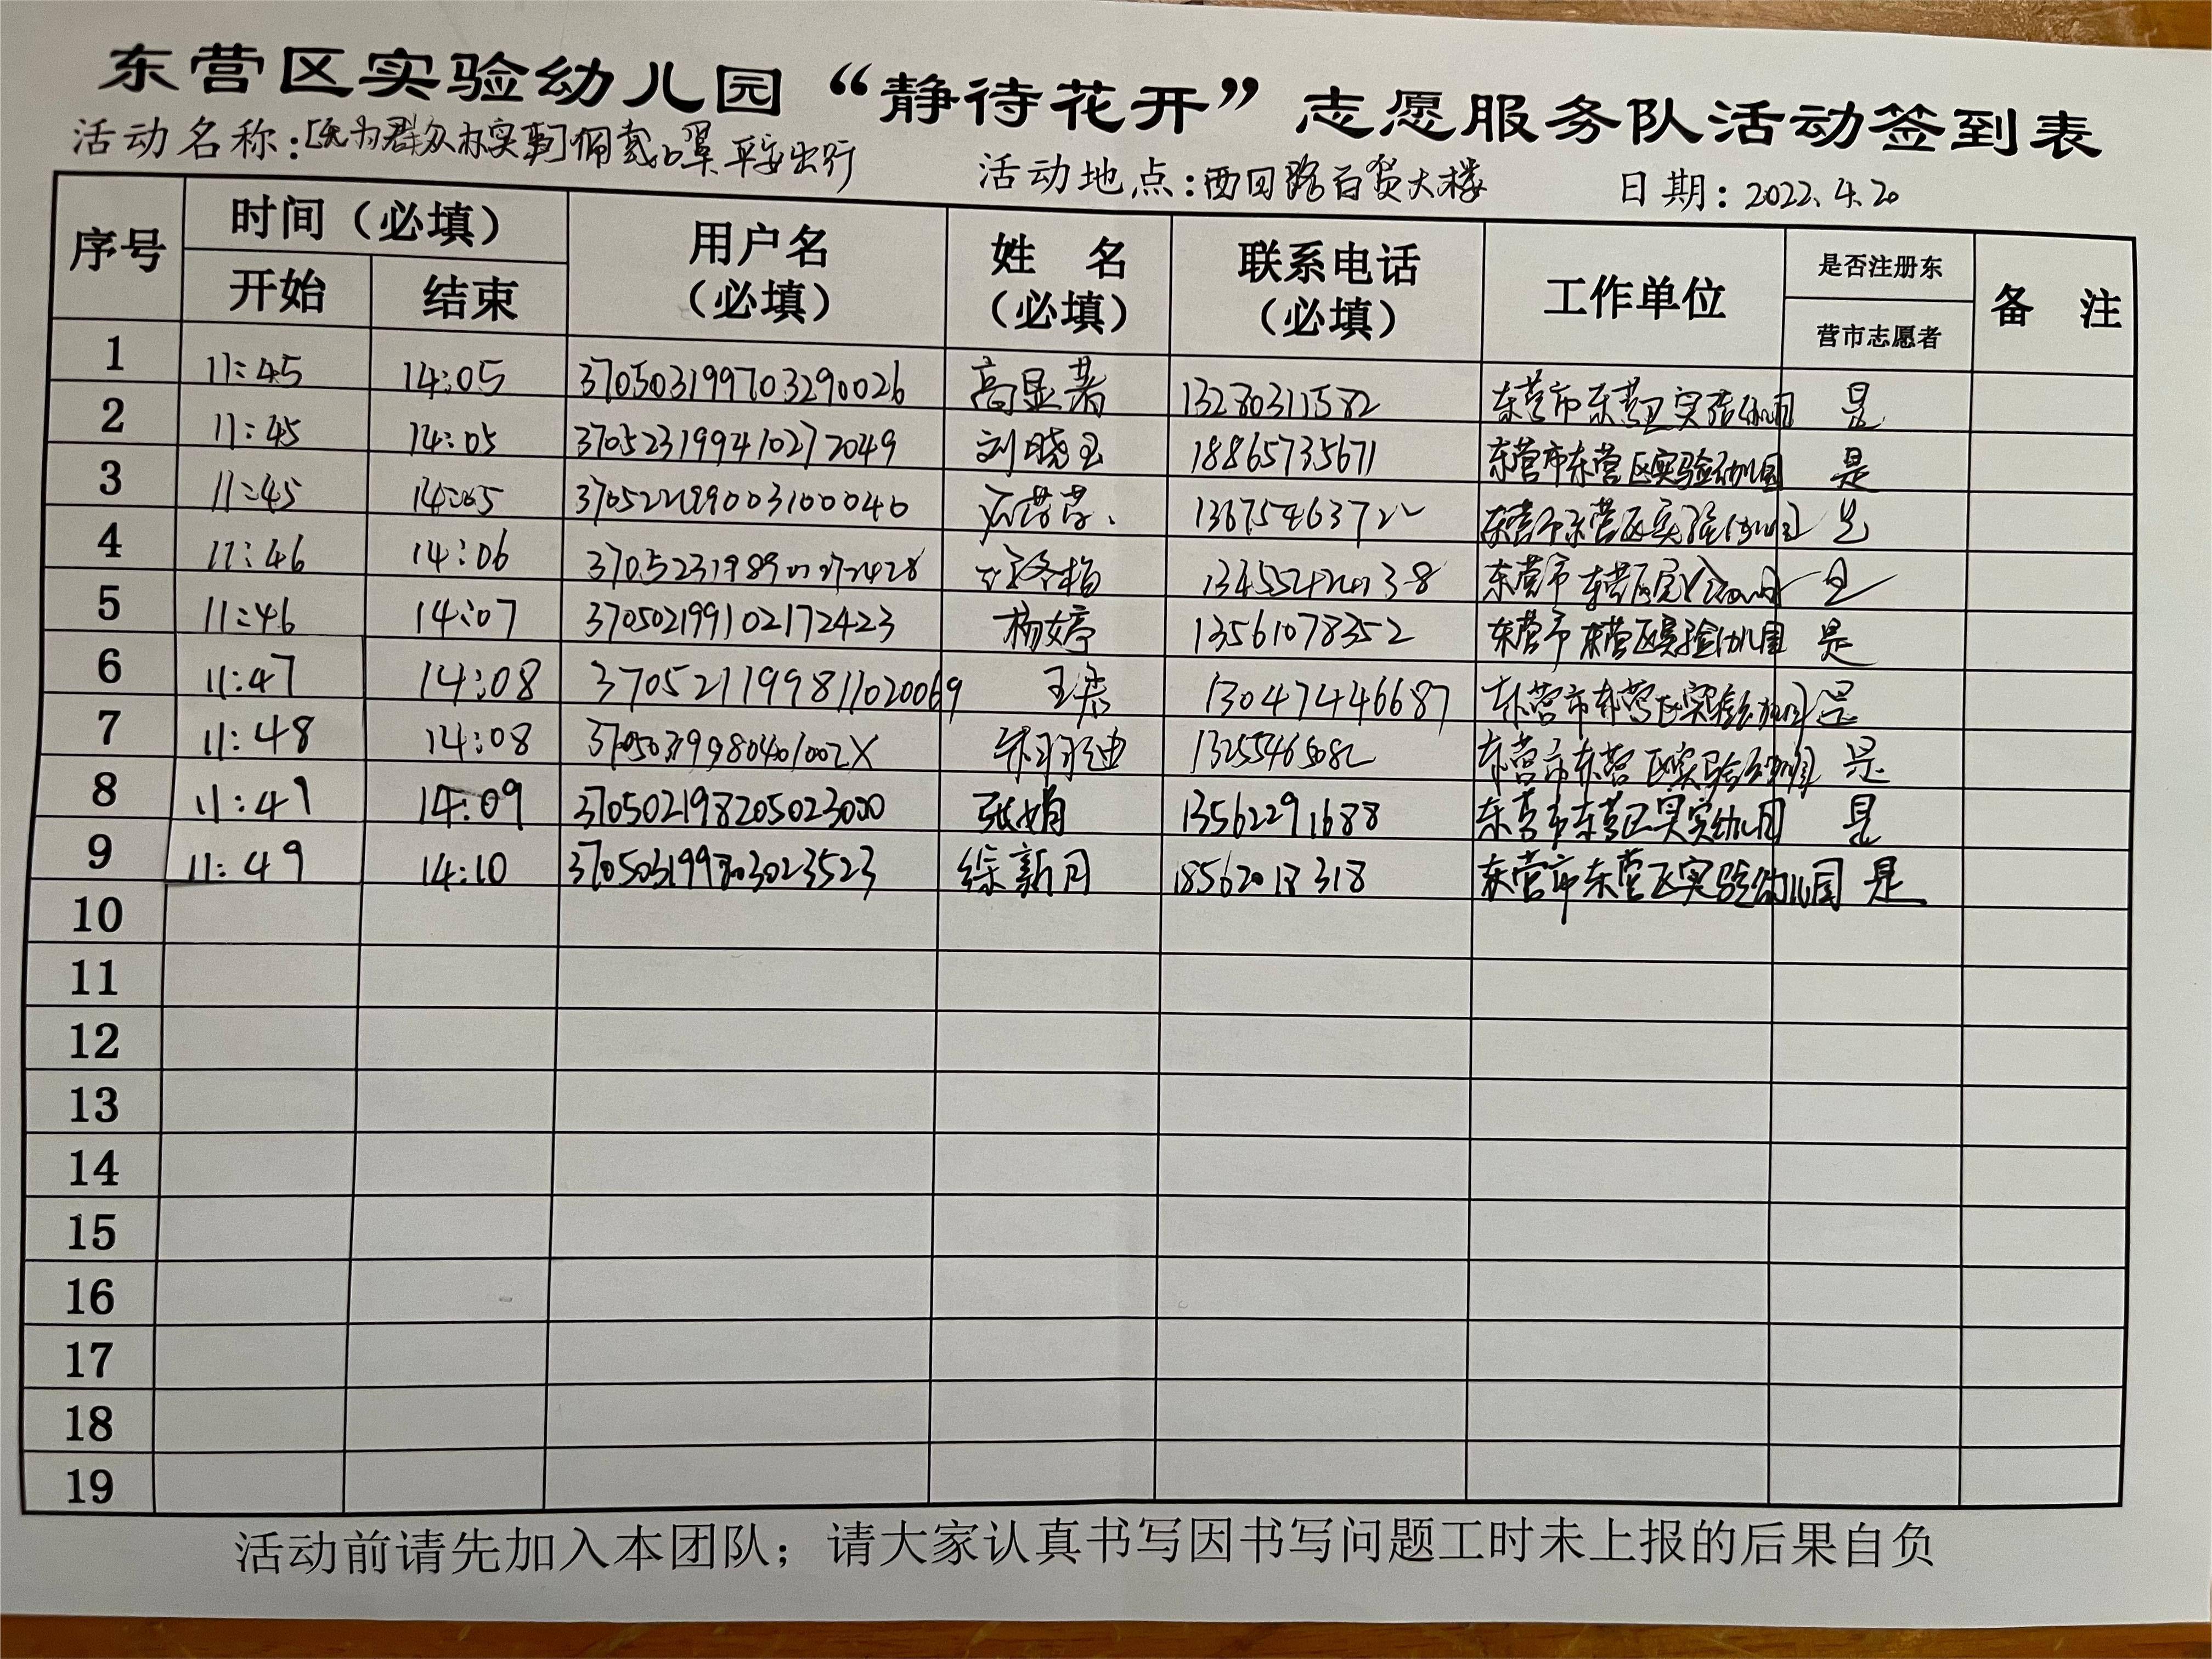 东营区实验幼儿园“静待花开”志愿服务队活动签到表
活动名称：[我为群众办实事]佩戴口罩 平安出行 活动地点：西四路百货大楼 日期：2022.4.20
序号 时间（必填） 用户名（必填） 姓 名（必填） 联系电话（必填） 工作单位 是否注册东营市志愿者 备 注
开始 结束
1 11:45 14:05 370503199703290026 高显著 13280311582 东营市东营区实验幼儿园 是
2 11:45 14:05 370523199410272049 刘晓玉 18865735671 东营市东营区实验幼儿园 是
3 11:45 14:05 13675463722 东营市东营区实验幼儿园 是
4 11:46 14:06 东营市东营区实验幼儿园 是
5 11:46 14:07 370502199102172423 杨婷 13561078352 东营市东营区实验幼儿园 是
6 11:47 14:08 370521199811020069 13047446687 东营市东营区实验幼儿园 是
7 11:48 14:08 37050319980401002X 13255465082 东营市东营区实验幼儿园 是
8 11:49 14:09 张娟 13562291688 东营市东营区实验幼儿园 是
9 11:49 14:10 370503199803023523 徐新月 东营市东营区实验幼儿园 是
10
11
12
13
14
15
16
17
18
19
活动前请先加入本团队；请大家认真书写因书写问题工时未上报的后果自负